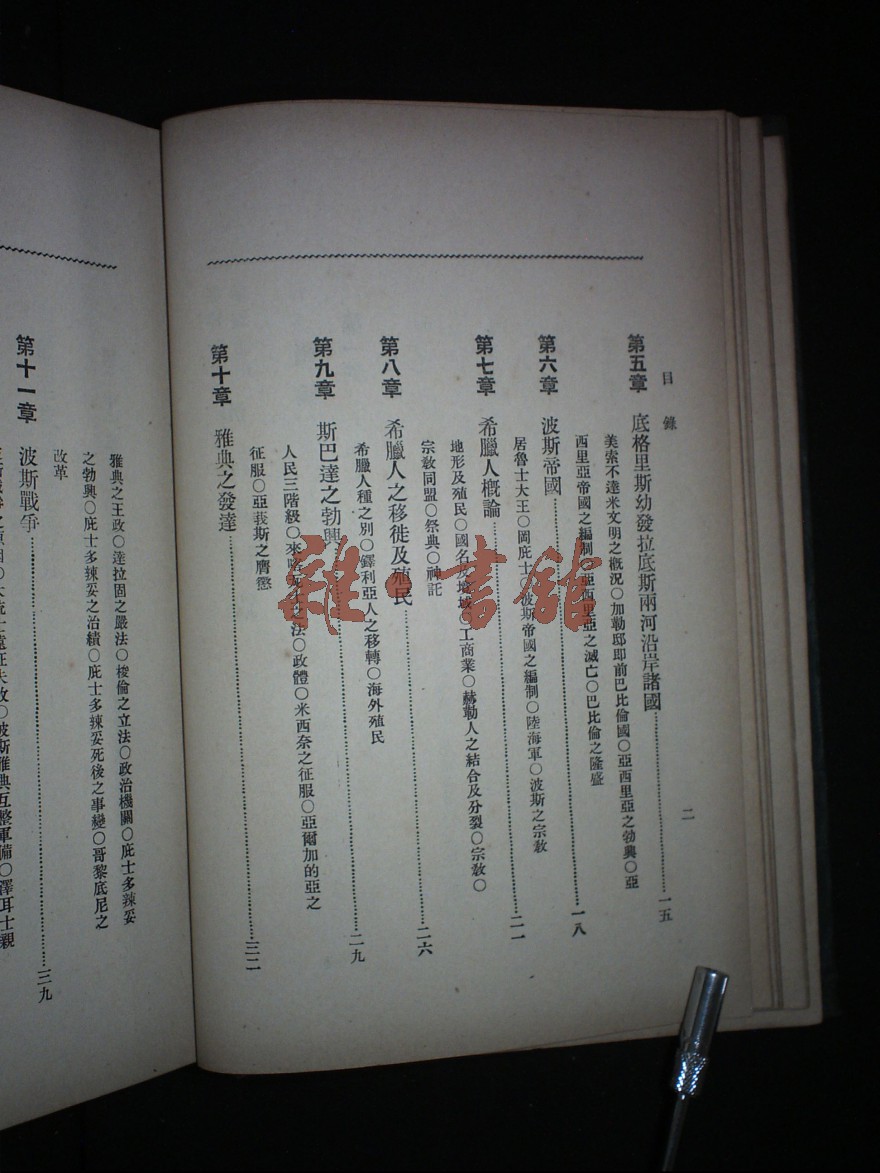 目錄
二
第五章 底格里斯幼發拉底斯兩河沿岸諸國…………一五
美索不達米文明之概況○加勒邸即前巴比倫國○亞西里亞之勃興○亞
西里亞帝國之編制○亞西里亞之滅亡○巴比倫之隆盛
第六章 波斯帝國…………一八
居魯士大王○岡庇士○波斯帝國之編制○陸海軍○波斯之宗教
第七章 希臘人概論…………二一
地形及殖民○國名及境域○工商業○赫勒人之結合及分裂○宗教○
宗教同盟○祭典○神託
第八章 希臘人之移徙及殖民…………二六
希臘人種之別○鐸利亞人之移轉○海外殖民
第九章 斯巴達之勃興…………二九
人民三階級○來喀瓦士之法○政體○米西奈之征服○亞爾加的亞之
征服○亞莪斯之膺懲
第十章 雅典之發達…………三二
雅典之王政○達拉固之嚴法○梭倫之立法○政治機關○庇士多辣妥
之勃興○庇士多辣妥之治績○庇士多辣妥死後之事變○哥黎底尼之
改革
第十一章 波斯戰爭…………三九
大流士遠征失敗○波斯雅典互整軍備○澤耳士親
雜·書館